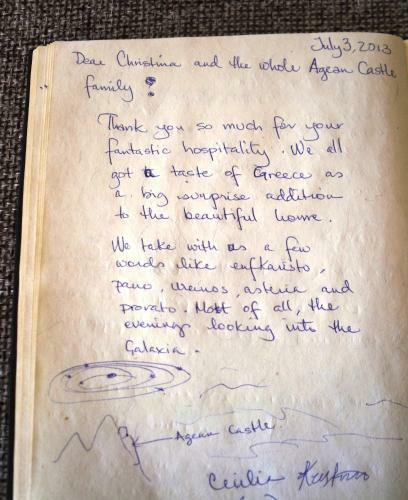 July 3, 2013
Dear Christina and the whole Agean Castle
family!
Thank you so much for your
fantastic hospitality. We all
got a taste of Greece as
a big surprise addition
to the beautiful home.
We take with us a few
words like enfkaristo,
pano, uranos, asteria and
provato. Most of all, the
evenings looking into the
Galaxia.
Agean Castle
Cecilia